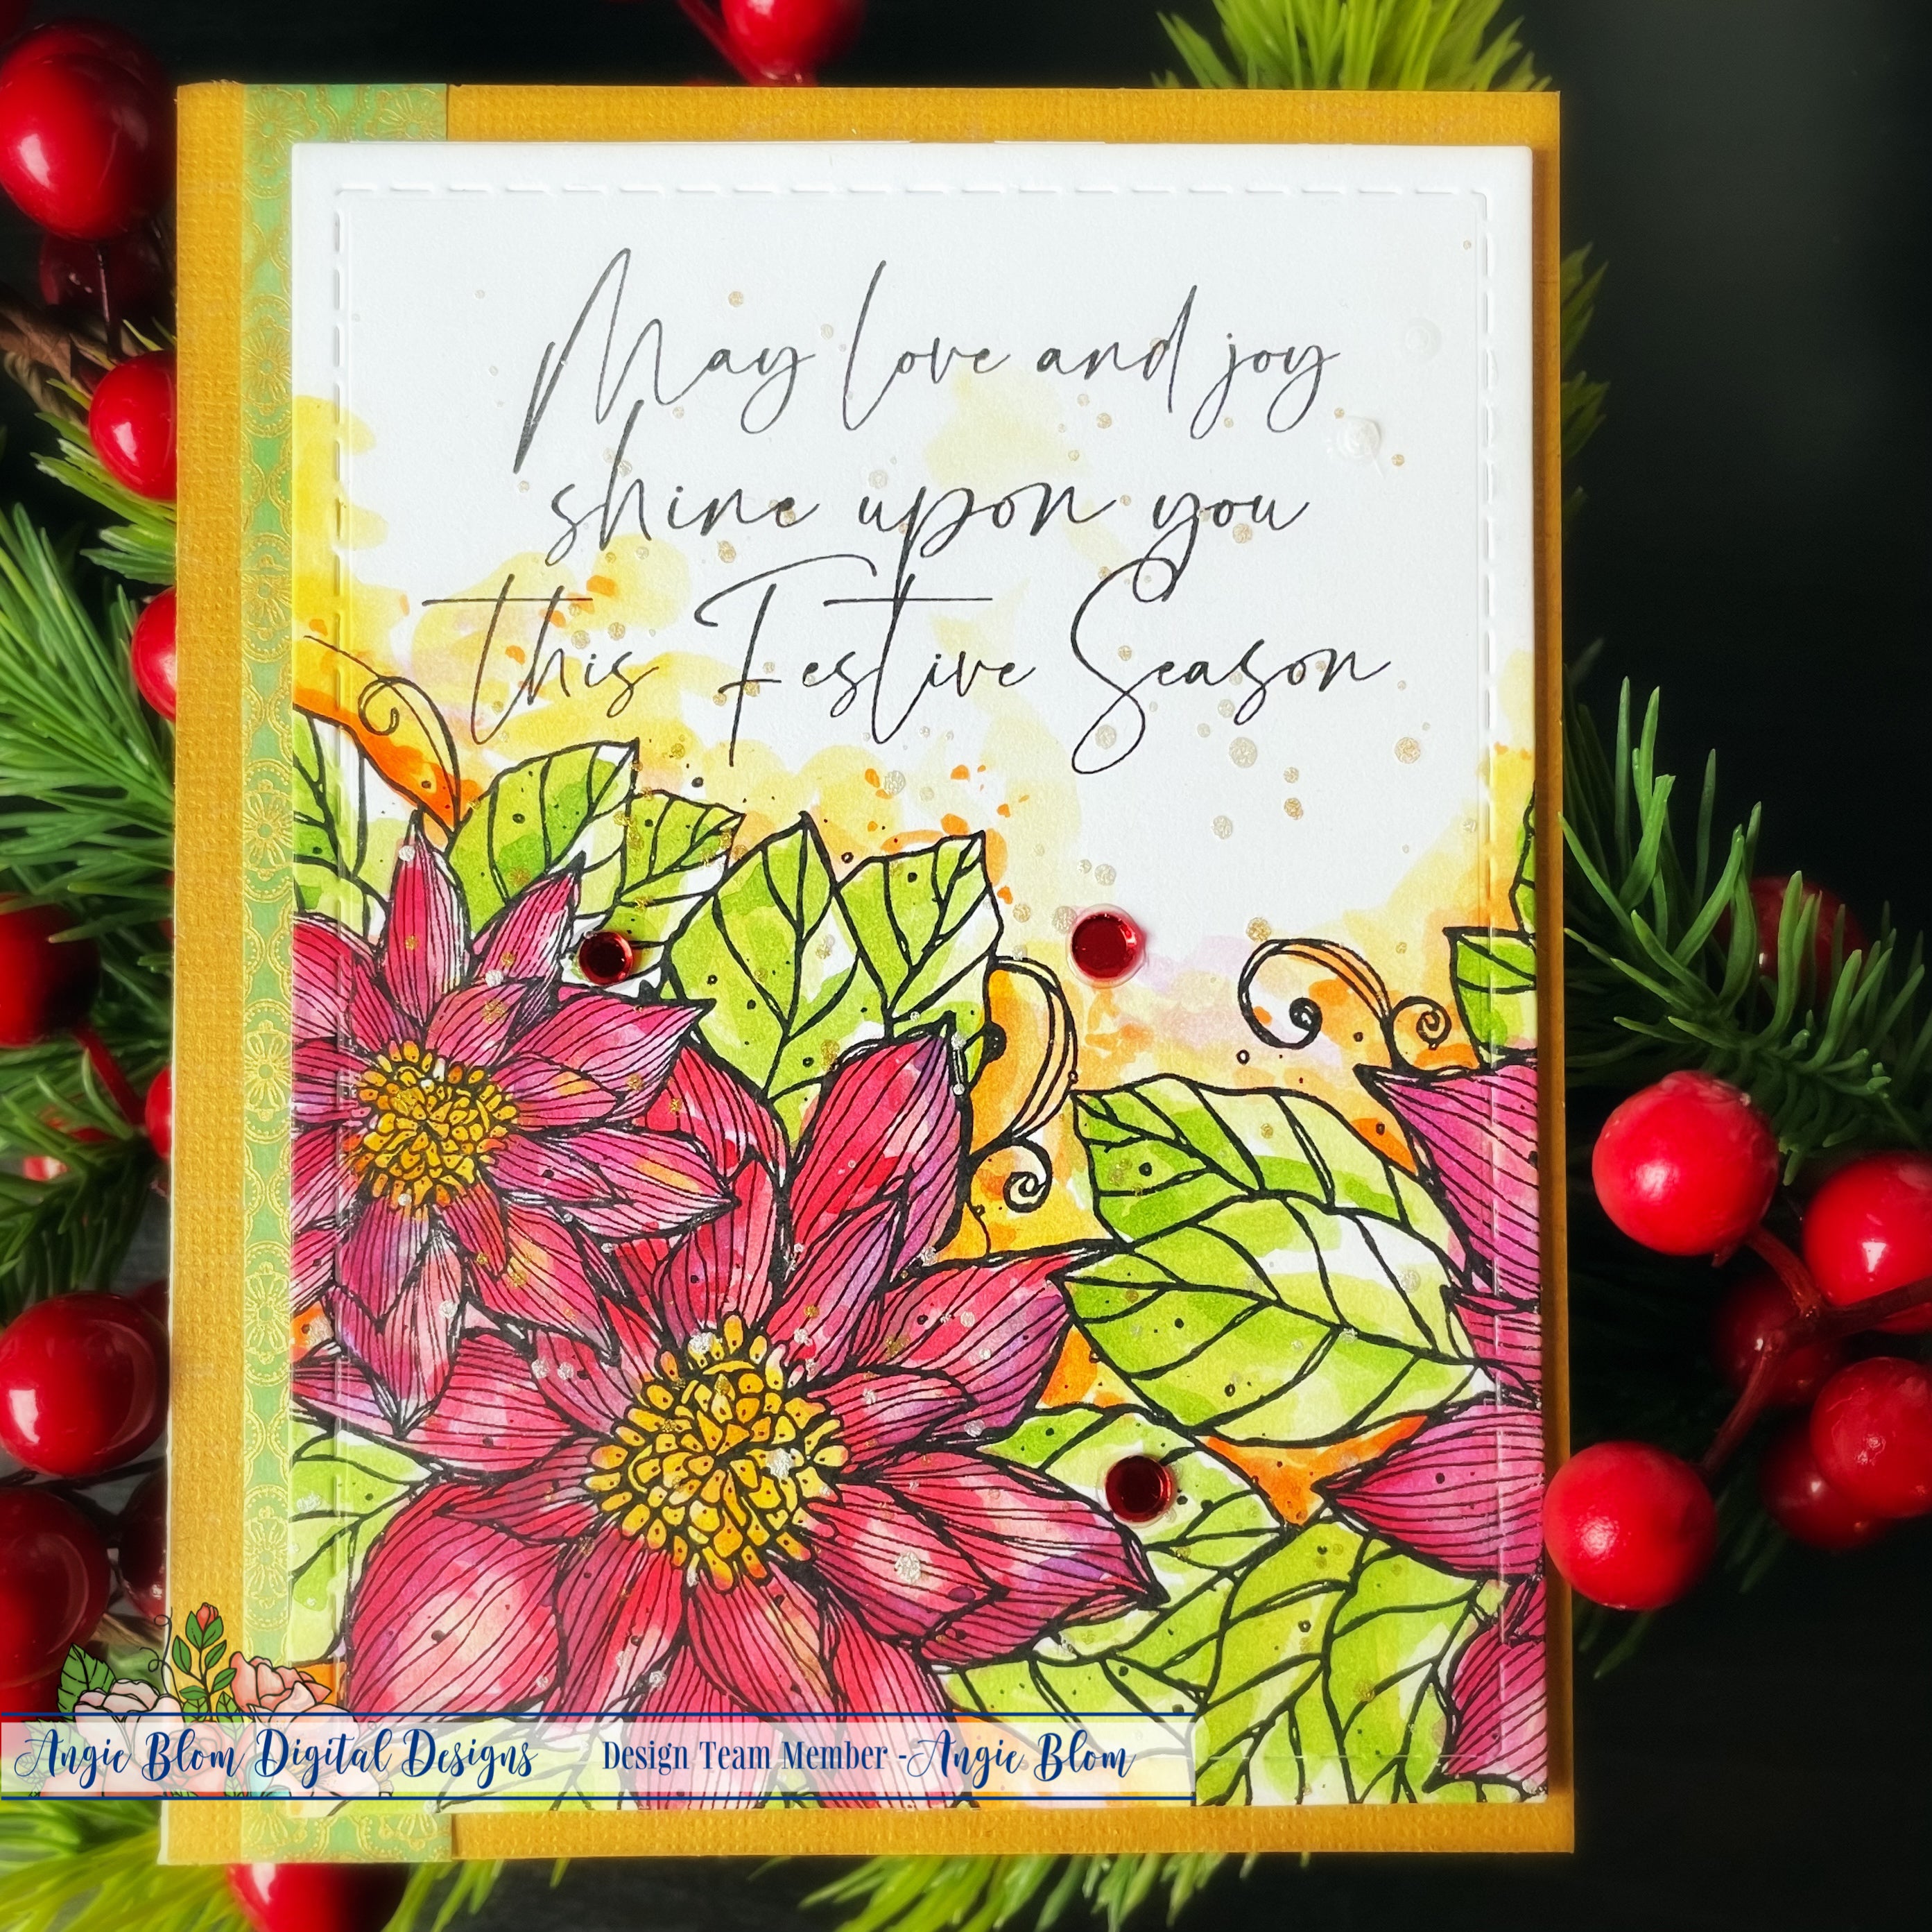 May love and joy
shine upon you
this Festive Season
Angie Blom Digital Designs Design Team Member - Angie Blom